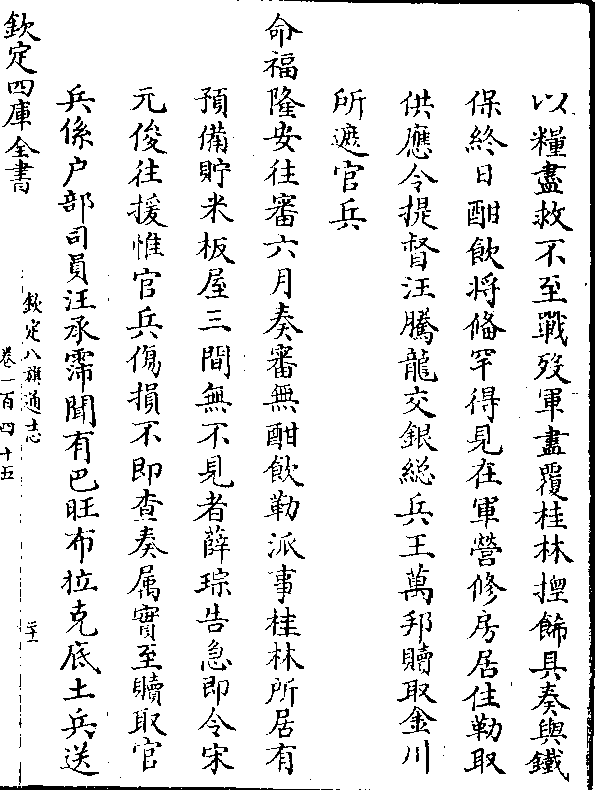 以糧盡救不至戰歿軍盡覆桂林捏飾具奏與鐵
保終日酣飲將備罕得見在軍營修房居住勒取
供應令提督汪騰龍交銀総兵王萬邦贖取金川
所遮官兵
命福隆安往審六月奏審無酣飲勒派事桂林所居有
預備貯米板屋三間無不見者薛琮告急即令宋
元俊往援惟官兵傷損不即查奏属實至贖取官
兵係户部司員汪承霈聞有巴旺布拉克底土兵送
欽定四庫全書
欽定八旗通志
卷一百四十五